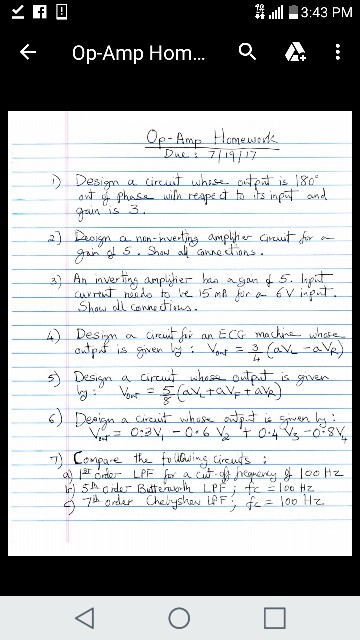 3:43 PM
Op-Amp Hom...
Op-Amp Homework
Due: 7/19/17
1) Design a circuit whose output is 180°
out of phase with respect to its input and
gain is 3.
2) Design a non-inverting amplifier circuit for a
gain of 5. Show all connections.
3) An inverting amplifier has a gain of 5. Input
current needs to be 15 mA for a 6V input.
Show all connections.
4) Design a circuit for an ECG machine whose
output is given by: Vout = 3/4 (aVL - aVR)
5) Design a circuit whose output is given
by: Vout = 5/8 (aVL + aVF + aVR)
6) Design a circuit whose output is given by:
Vout = 0.2V1 - 0.6 V2 + 0.4 V3 - 0.8V4
7) Compare the following circuits:
a) 1st order LPF for a cut-off frequency of 100 Hz
b) 5th order Butterworth LPF; fc = 100 Hz
c) 7th order Chebyshev LPF; fc = 100 Hz.